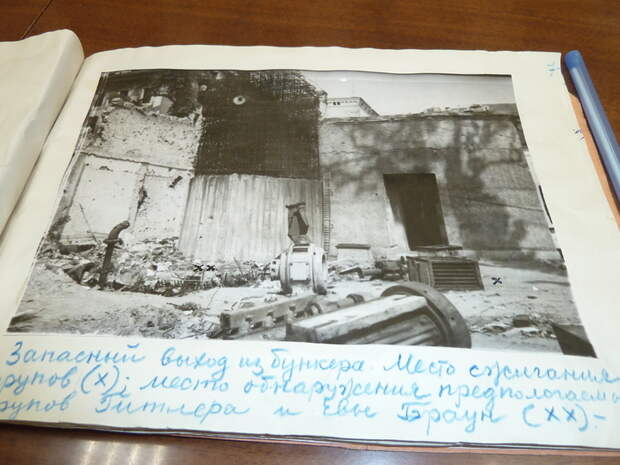 7
Запасный выход из бункера. Место сжигания
трупов (X); место обнаружения предпологаемых
трупов Гитлера и Евы Браун (XX).-